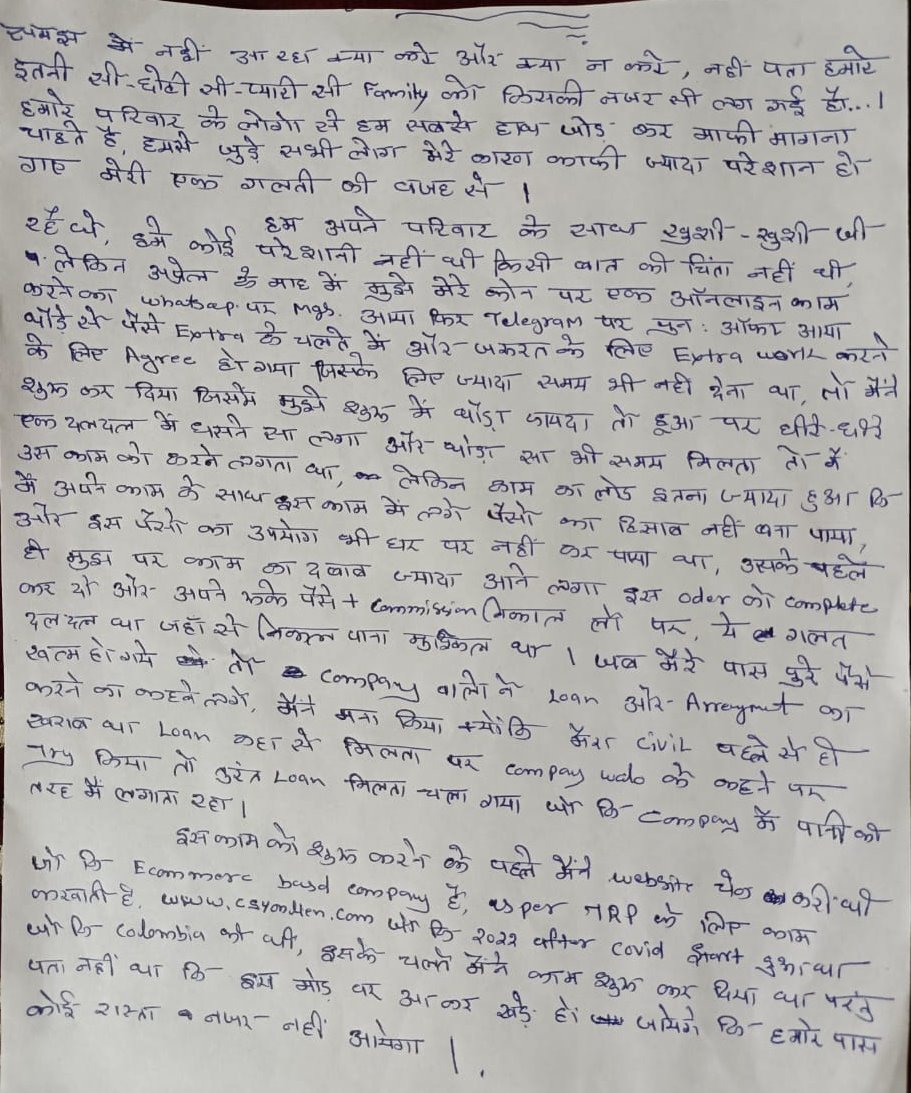 समझ में नहीं आ रहा क्या करे और क्या न करे, नहीं पता हमारे
इतनी सी-छोटी सी-प्यारी सी Family को किसकी नजर सी लग गई है...।
हमारे परिवार के लोगो से हम सबसे हाथ जोड़ कर माफी मांगना
चाहते है, हमसे जुड़े सभी लोग मेरे कारण काफी ज्यादा परेशान हो
गए मेरी एक गलती की वजह से ।
हम अपने परिवार के साथ खुशी-खुशी जी
रहे थे, हमे कोई परेशानी नहीं थी किसी बात की चिंता नहीं थी
लेकिन अप्रेल के माह में मुझे मेरे फोन पर एक ऑनलाइन काम
करने का whatsap पर Mgs. आया फिर Telegram पर पुन: ऑफर आया
थोड़े से पैसे Extra के चलते में और जरूरत के लिए Extra work करने
के लिए Agree हो गया जिसके लिए ज्यादा समय भी नही देना था, तो मैने
शुरू कर दिया जिसमें मुझे शुरू में थोड़ा फायदा तो हुआ पर धीरे-धीरे
एक दलदल में धसने सा लगा और थोड़ा सा भी समय मिलता तो मैं
उस काम को करने लगता था, लेकिन काम का लोड इतना ज्यादा हुआ कि
मैं अपने काम के साथ इस काम में लगे पैसों का हिसाब नहीं बना पाया,
और इस पैसो का उपयोग भी घर पर नहीं कर पाया था, उसके पहले
ही मुझ पर काम का दबाव ज्यादा आने लगा इस oder को complete
कर दो और अपने रूके पैसे + commission निकाल लो पर, ये गलत
दलदल था जहाँ से निकल पाना मुश्किल था । जब मेरे पास पुरे पैसे
खत्म हो गये तो company वालो ने Loan और Arreymnt का
करने का कहने लगे, मैंने मना किया क्योंकि मेरा civil पहले से ही
खराब था Loan कहा से मिलता पर compay walo के कहने पर
Try किया तो तुरंत Loan मिलता चला गया जो कि Company में पानी की
तरह मैं लगाता रहा ।
इस काम को शुरू करने के पहले मैंने website चेक करी थी
जो कि Ecommerc based company है, as per TRP के लिए काम
करवाती है, www.csyonllen.com जो कि 2022 after covid स्टार्ट हुआ था
जो कि Colombia की थी, इसके चलते मैंने काम शुरू कर दिया था परंतु
पता नहीं था कि इस मोड़ पर आ कर खड़े हो जायेगे कि हमारे पास
कोई रास्ता नजर नहीं आयेगा ।.